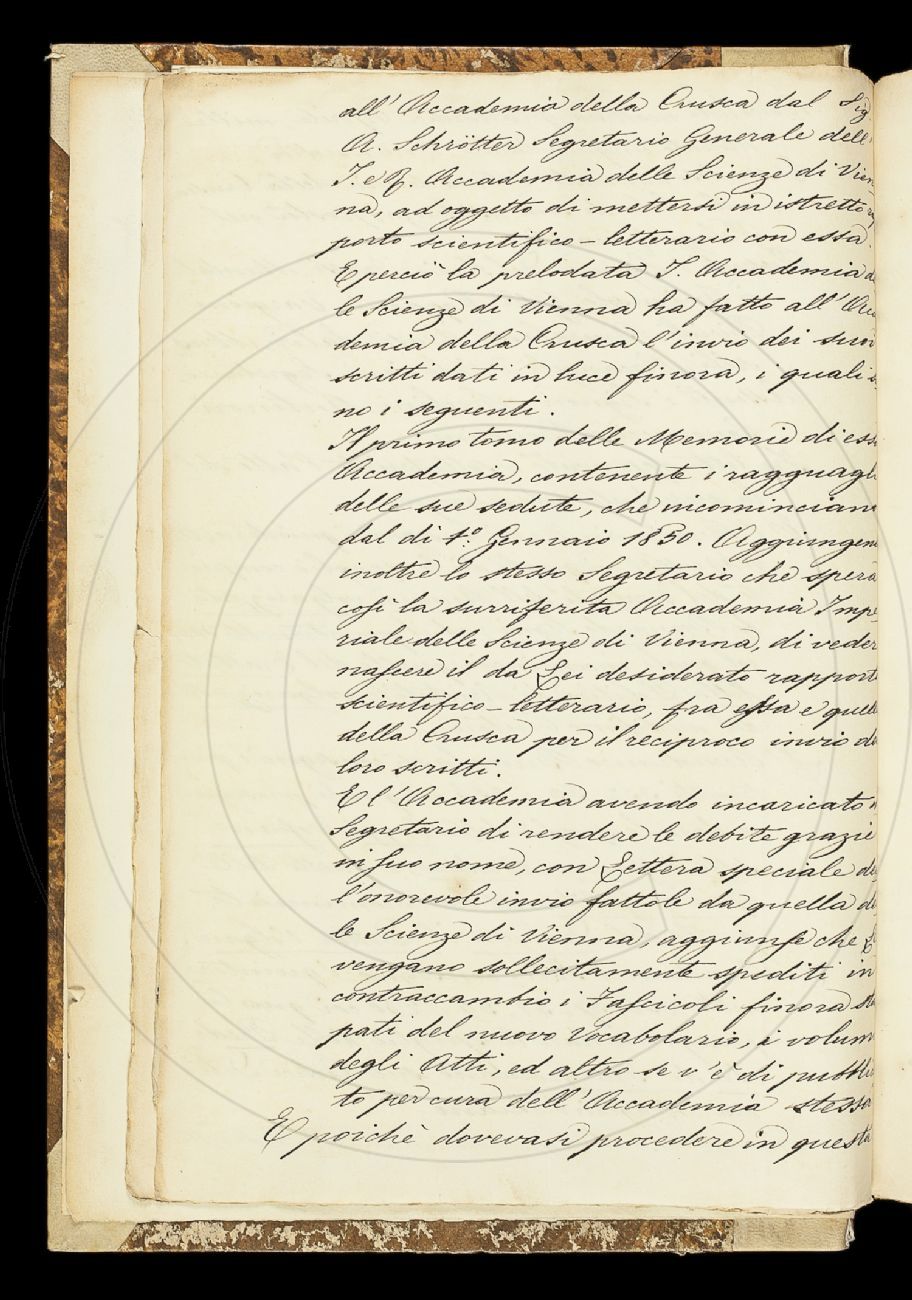 all' Accademia della Crusca dal Sig.
A. Schrötter Segretario Generale dell'
I. e R. Accademia delle Scienze di Vien-
na, ad oggetto di mettersi in istretto
porto scientifico-letterario con essa.
E perciò la prelodata I. Accademia de
le Scienze di Vienna ha fatto all' Acca
demia della Crusca l'invio dei suoi
scritti dati in luce finora, i quali so
no i seguenti.
Il primo tomo delle Memorie di essa
Accademia, contenente i ragguagli
delle sue sedute, che incominciano
dal dì 1.º Gennaio 1850. Aggiungendo
inoltre lo stesso Segretario che spera
così la surriferita Accademia Impe-
riale delle Scienze di Vienna, di veder
nascere il da Lei desiderato rapporto
scientifico-letterario, fra essa e quella
della Crusca per il reciproco invio de
loro scritti.
E l'Accademia avendo incaricato il
Segretario di rendere le debite grazie
in suo nome, con Lettera speciale de
l'onorevole invio fattole da quella de
le Scienze di Vienna, aggiunse che Le
vengano sollecitamente spediti in
contraccambio i Fascicoli finora sta
pati del nuovo Vocabolario, i volumi
degli Atti, ed altro se v'è di pubbli
to per cura dell'Accademia stessa
E poichè dovevasi procedere in questa